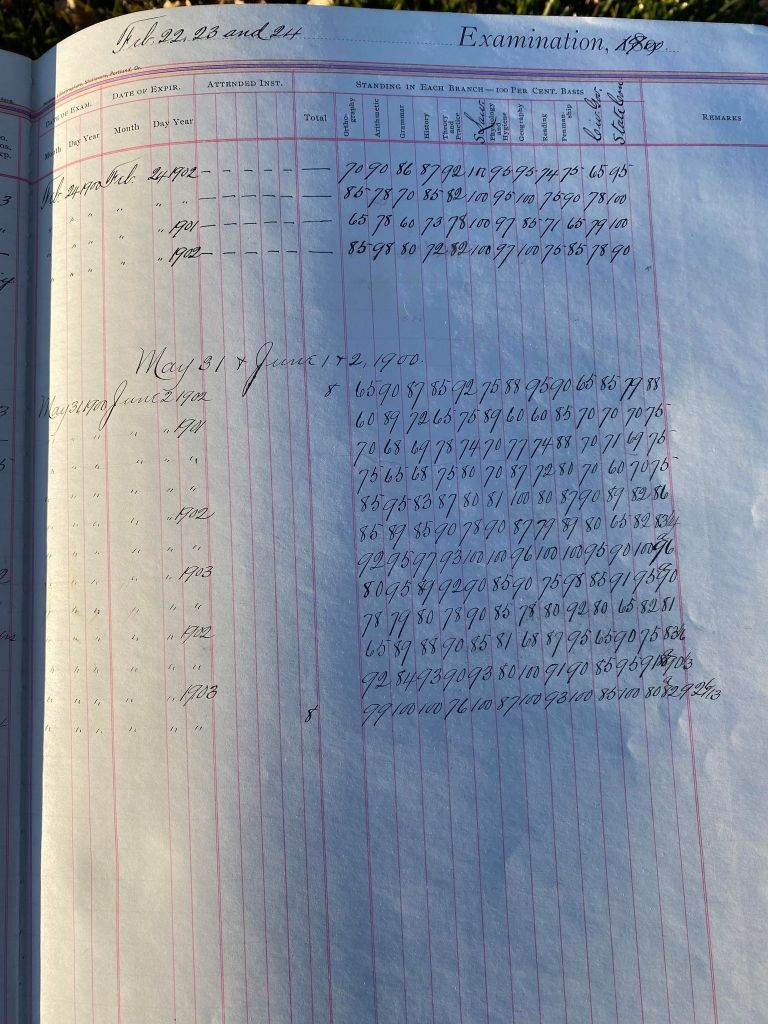 Feb. 22, 23 and 24 Examination, 1900
DATE OF EXAM. DATE OF EXPIR. ATTENDED INST. STANDING IN EACH BRANCH—100 PER CENT. BASIS
Month Day Year Month Day Year Total Orthography Arithmetic Grammar History Theory and Practice S. Law Physiology and Hygiene Geography Reading Penmanship REMARKS
Feb. 24 1900 Feb. 24 1902 — — — — — — 70 90 86 87 92 100 95 95 74 75 65 95
" " " " " — — — — — — 85 78 70 85 82 100 95 100 75 90 78 100
" " " " " 1901 — — — — — — 65 78 60 73 78 100 97 85 71 65 79 100
" " " " " 1902 — — — — — — 85 98 80 72 82 100 97 100 75 85 78 90
May 31 & June 1 & 2, 1900.
May 31 1900 June 2 1902 8 65 90 87 85 92 75 88 95 90 65 85 79 88
" " " " " 1901 60 89 72 65 75 89 60 60 85 70 70 70 75
" " " " " " 70 68 69 78 74 70 77 74 88 70 71 69 75
" " " " " " 75 65 68 75 80 70 87 72 80 70 60 70 75
" " " " " 1902 85 95 83 87 80 81 100 80 87 90 89 82 86
" " " " " " 85 89 85 90 78 90 87 79 87 80 65 82
" " " " " 1903 92 95 97 93 100 100 96 100 100 95 90 100 96
" " " " " " 80 95 89 92 90 85 90 75 98 85 91 95 90
" " " " " 1902 78 79 80 78 90 85 78 80 92 80 65 82 81
" " " " " " 65 89 88 90 85 81 68 87 95 65 90 75
" " " " " 1903 92 84 93 90 93 80 100 91 90 85 95
" " " " " " 8 99 100 100 76 100 87 100 93 100 85 100 80